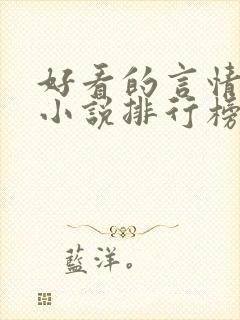 好看的言情
小说排行榜
蓝洋。